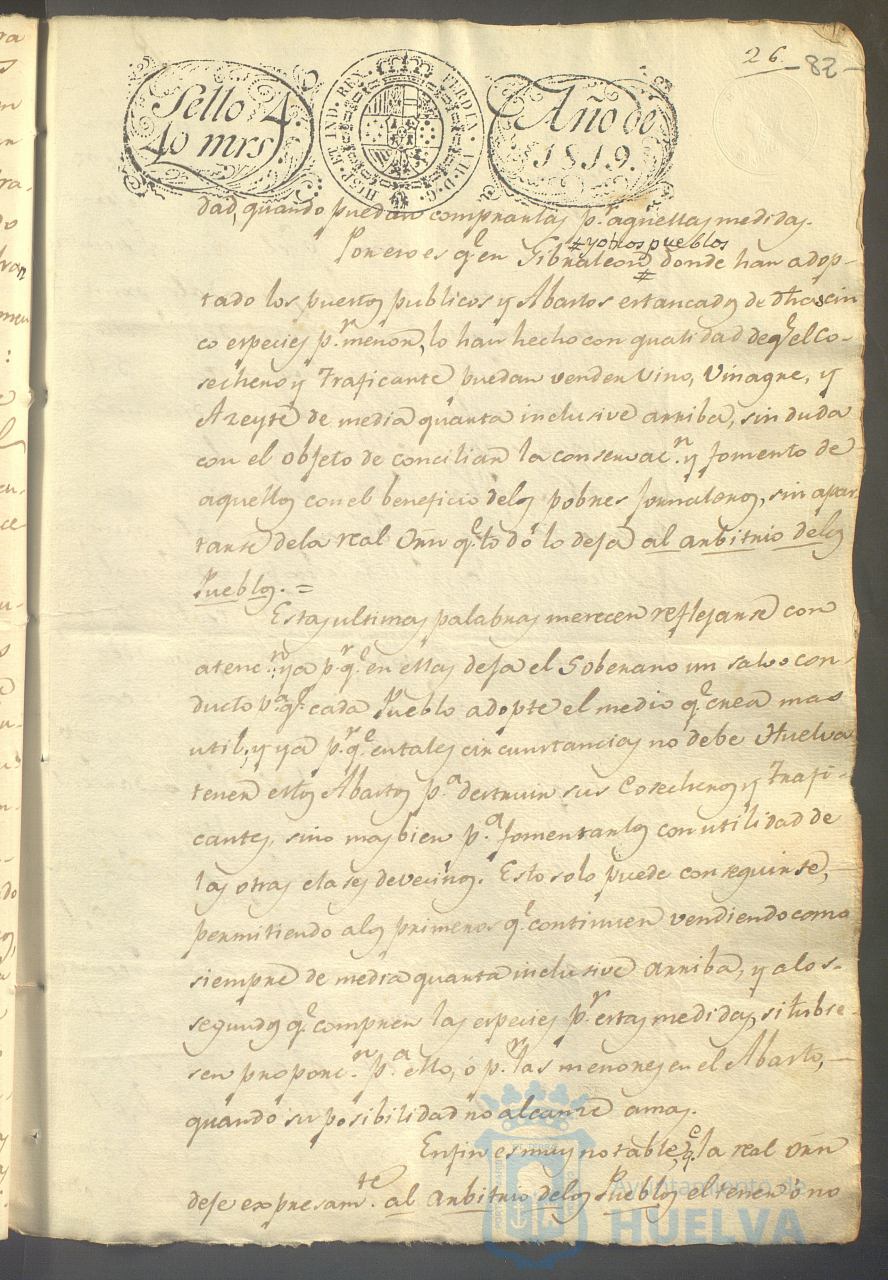 26 82
Sello 4.º 40 mrs.
HISP. ET IND. REX. FERD. VII. D. G.
Año de 1819.
dad, quando puedan comprarlas p.r aquellas medidas.
Por eso es q.e en Gibraleon # y otros pueblos # donde han adop-
tado los puestos publicos y Abastos estancados de dhas cin
co especies p.r menor, lo han hecho con qualidad de q.e el Co-
sechero y Traficante puedan vender Vino, Vinagre, y
Azeyte de media quarta inclusive arriba, sin duda
con el objeto de conciliar la conservac.n y fomento de
aquellos con el beneficio delos pobres jornaleros, sin apar-
tarse dela real Orn q.e todo lo deja al arbitrio delos
Pueblos. =
Estas ultimas palabras merecen reflejarse con
atenc.n ya p.r q.e en ellas deja el Soberano un salvo con-
ducto p.a q.e cada Pueblo adopte el medio q.e crea mas
util, y ya p.r q.e en tales circunstancias no debe Huelva
tener estos Abastos p.a destruir sus Cosecheros y Trafi-
cantes, sino mas bien p.a fomentarlos con utilidad de
las otras clases de vecinos. Esto solo puede conseguirse,
permitiendo alos primeros q.e continuen vendiendo como
siempre de media quarta inclusive arriba, y alos
segundos q.e compren las especies p.r estas medidas, si tubie-
sen proporc.n p.a ello, ó p.r las menores en el Abasto,
quando su posibilidad no alcanze a mas.
En fin es muy notable, q.e la real Orn
deje expresam.te al arbitrio delos Pueblos el tener ó no
Ayuntamiento de
HUELVA